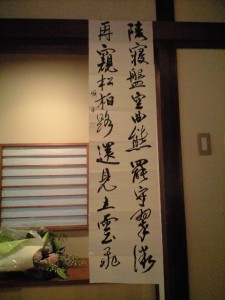 陵寝盤空曲熊羆守翠微
再窺松柏路還見五雲飛